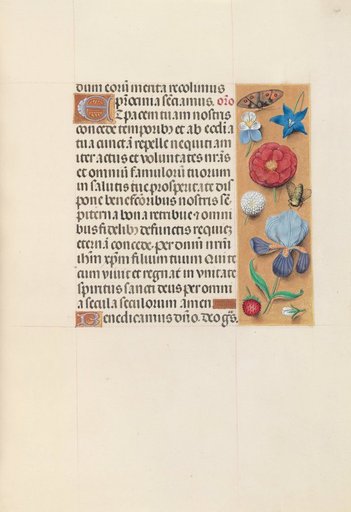 dum eorū merita recolimus
p̄rocinia sēciamus. orō
Et pacem tuam nostris
concede temporibꝰ et ab eccl̄ia
tua cunctā repelle nequiciam
iter actus et voluntates nr̄as
et omniū famulorū tuorum
in salutis tue prosperitate dis
pone benefactoribus nostris sē
piterna bona retribue ⁊ omni
bus fidelibꝫ defunctis requiē
eternā concede. per dn̄m nr̄m
ihm̄ xp̄m filium tuum Qui te
cum viuit et regnat in vnitate
spiritus sancti deus per omni
a secula seculorum amen
Benedicamus dn̄o. deo gr̄s.